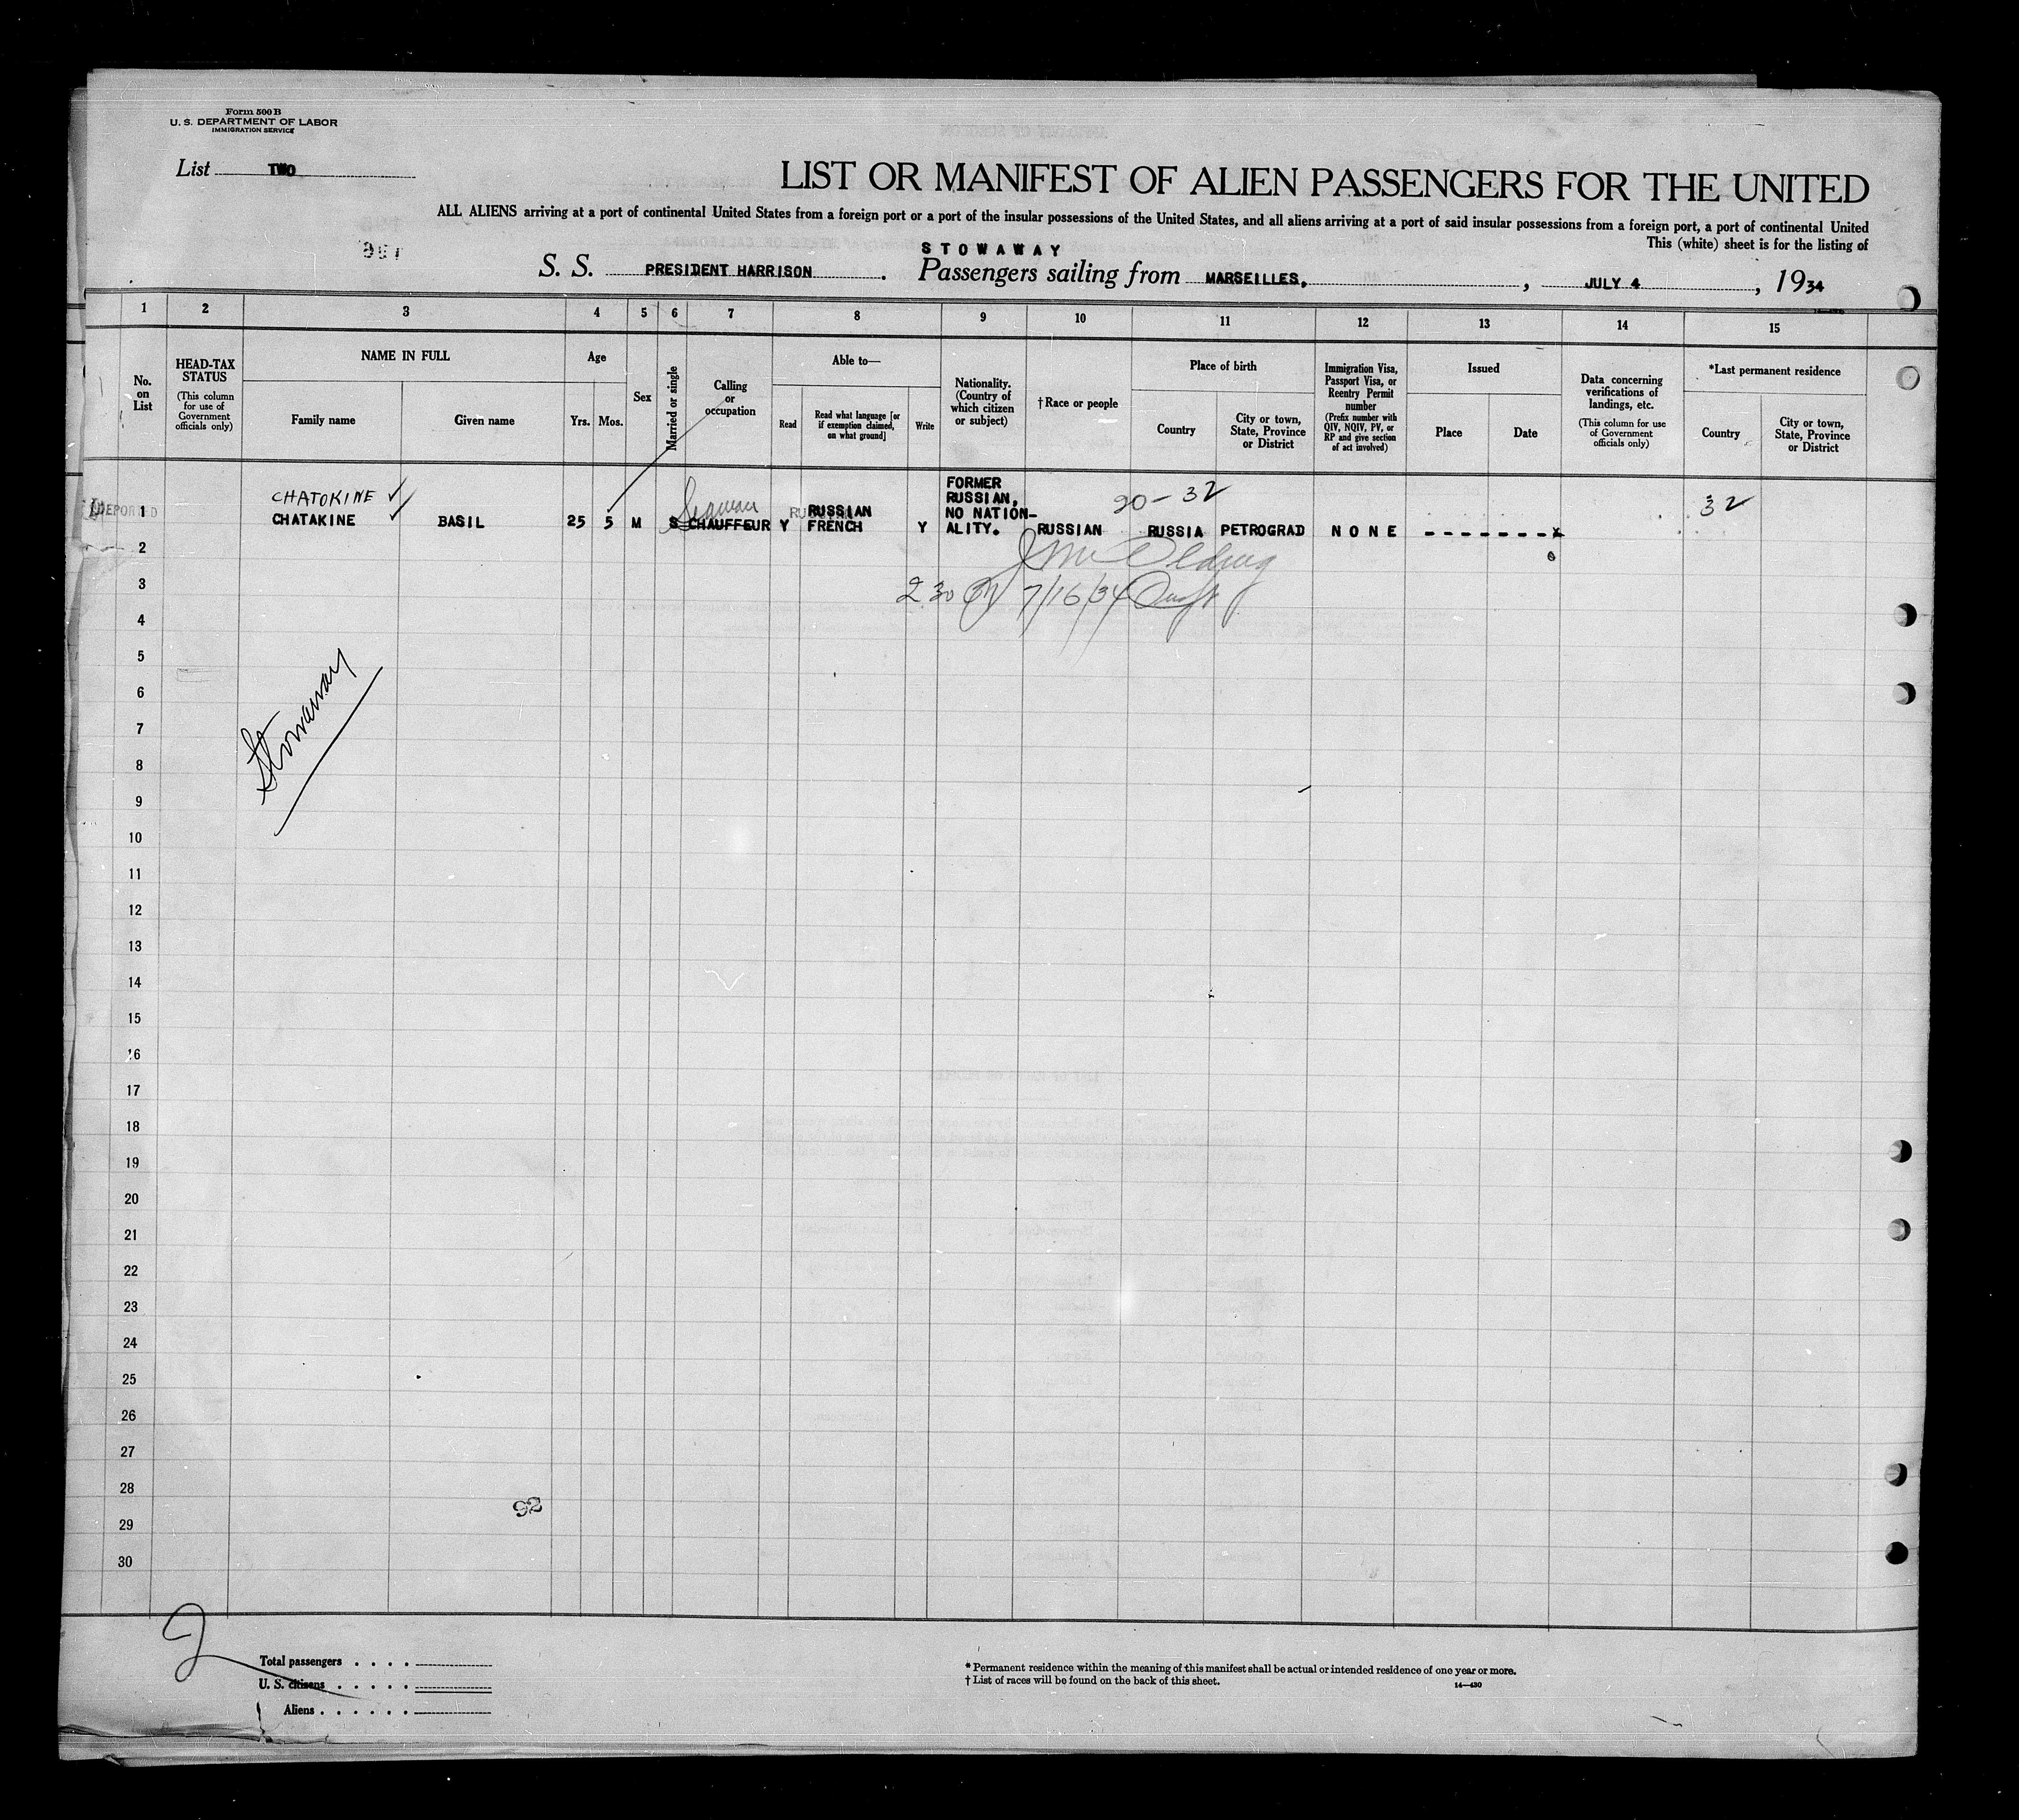 Form 500 B
U. S. DEPARTMENT OF LABOR
IMMIGRATION SERVICE
List TWO
LIST OR MANIFEST OF ALIEN PASSENGERS FOR THE UNITED
ALL ALIENS arriving at a port of continental United States from a foreign port or a port of the insular possessions of the United States, and all aliens arriving at a port of said insular possessions from a foreign port, a port of continental United
This (white) sheet is for the listing of
STOWAWAY
S. S. PRESIDENT HARRISON. Passengers sailing from MARSEILLES, , JULY 4 , 1934
1 2 3 4 5 6 7 8 9 10 11 12 13 14 15
No. on List
HEAD-TAX STATUS
(This column for use of Government officials only)
NAME IN FULL
Family name
Given name
Age
Yrs. Mos.
Sex
Married or single
Calling or occupation
Able to—
Read
Read what language [or if exemption claimed, on what ground]
Write
Nationality. (Country of which citizen or subject)
†Race or people
Place of birth
Country
City or town, State, Province or District
Immigration Visa, Passport Visa, or Reentry Permit number
(Prefix number with QIV, NQIV, PV, or RP and give section of act involved)
Issued
Place
Date
Data concerning verifications of landings, etc.
(This column for use of Government officials only)
*Last permanent residence
Country
City or town, State, Province or District
DEPORTED
CHATOKINE
Seaman
20-32
32
1 CHATAKINE BASIL 25 5 M S CHAUFFEUR Y RUSSIAN FRENCH Y FORMER RUSSIAN, NO NATION-ALITY. RUSSIAN RUSSIA PETROGRAD NONE -------x
2
3 2 30 PM 7/16/34
4
5
6
Stowaway
7
8
9
10
11
12
13
14
15
16
17
18
19
20
21
22
23
24
25
26
27
28
92
29
30
2
Total passengers . . . .
U. S. citizens . . . . .
Aliens . . . . . .
* Permanent residence within the meaning of this manifest shall be actual or intended residence of one year or more.
† List of races will be found on the back of this sheet.
14—430